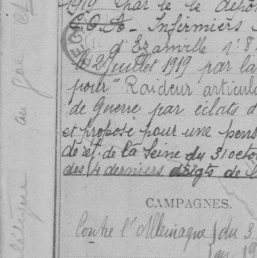 1919 par le
C.O.A - Infirmiers
d'Ezanville n°8
le 2 Juillet 1919 par la
pour "Raideur articul
de Guerre par éclats d
et proposé pour une pens
de la Seine du 31 octo
des 4 derniers doigts de l
CAMPAGNES.
Contre l'Allemagne du 3
au 19
au gaz